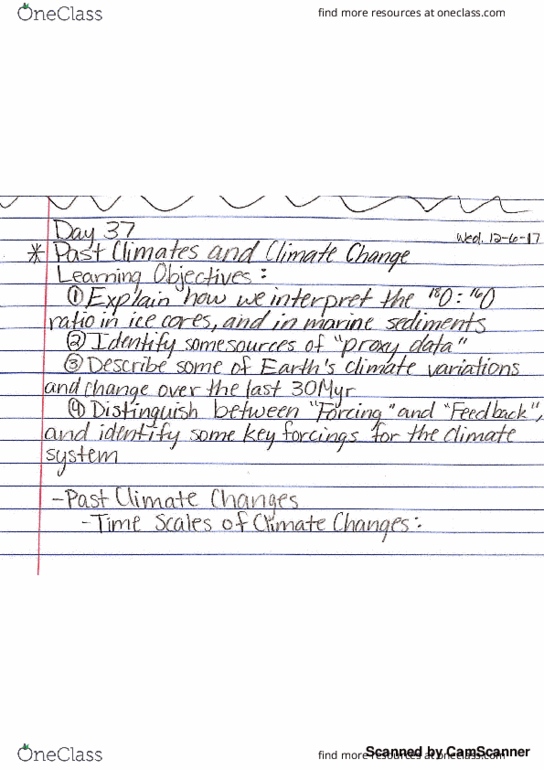 OneClass
find more resources at oneclass.com
Day 37
Wed. 12-6-17
* Past Climates and Climate Change
Learning Objectives:
① Explain how we interpret the ¹⁸O:¹⁶O
ratio in ice cores, and in marine sediments
② Identify some sources of "proxy data"
③ Describe some of Earth's climate variations
and change over the last 30Myr
④ Distinguish between "Forcing" and "Feedback",
and identify some key forcings for the climate
system
-Past Climate Changes
-Time Scales of Climate Changes:
OneClass
find more resources at oneclass.com
Scanned by CamScanner